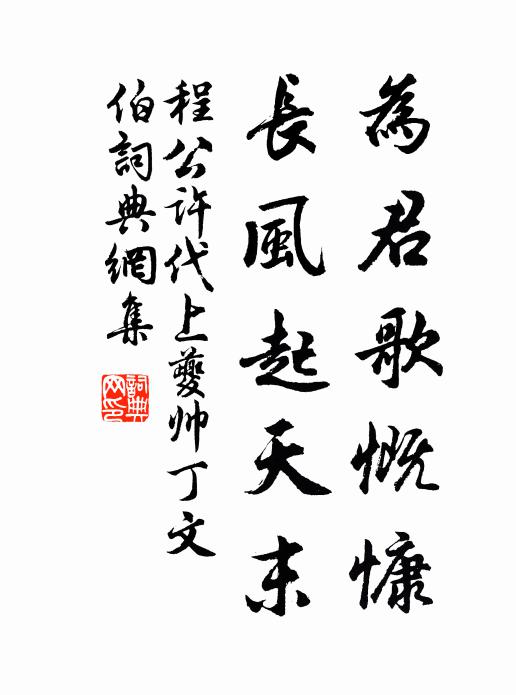 為君歌慨慷
長風起天末
程公許代上夔帅丁文
伯詞典網集
詞典
网印